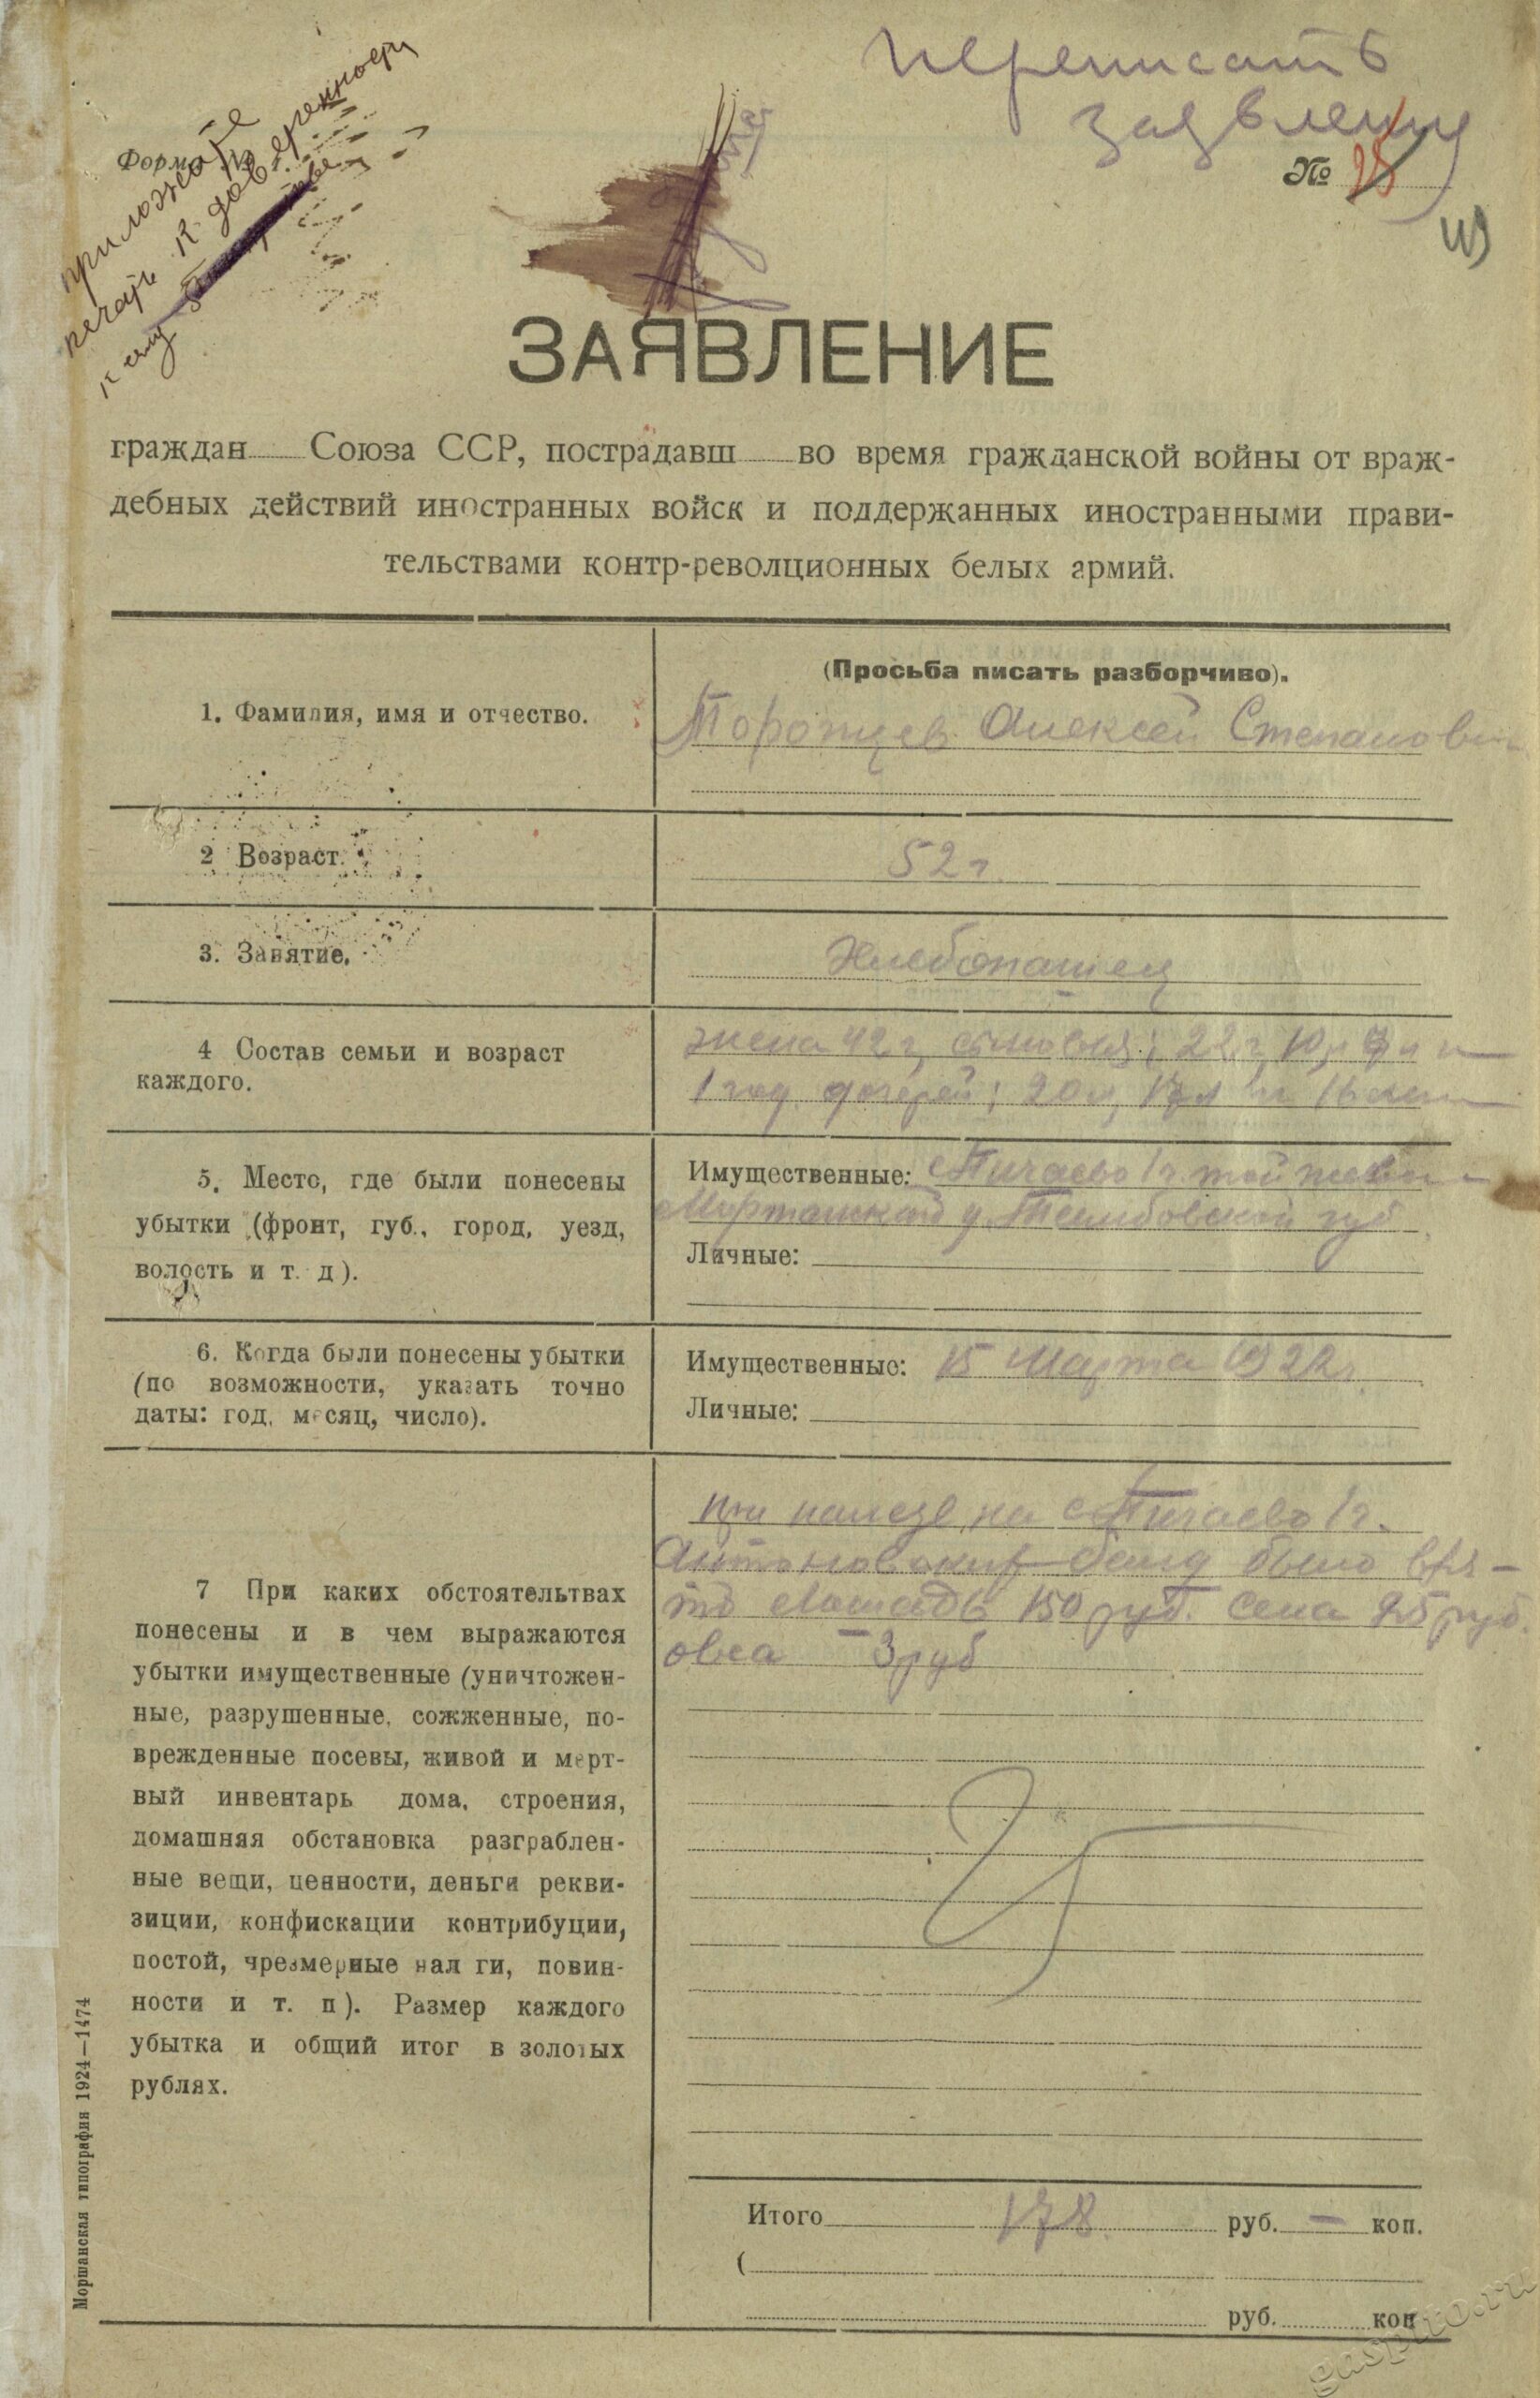 переписать
заявление
приложите
печать к доверенности
к сему
Форма №
№ 28
ЗАЯВЛЕНИЕ
граждан Союза ССР, пострадавш во время гражданской войны от враж-
дебных действий иностранных войск и поддержанных иностранными прави-
тельствами контр-револционных белых армий.
(Просьба писать разборчиво).
1. Фамилия, имя и отчество.
Алексей Степанович
2 Возраст.
52 г.
3. Занятие.
Хлебопашец
4 Состав семьи и возраст
каждого.
жена 42 г, сыновья; 22 г, 10 л 7 л и
1 год. дочерей; 20 л, 17 л и 16 лет
5. Место, где были понесены
убытки (фронт, губ., город, уезд,
волость и т. д).
Имущественные: с Пичаево 1 г. той же вол
у. Тамбовской губ
Личные:
6. Когда были понесены убытки
(по возможности, указать точно
даты: год, месяц, число).
Имущественные: 15 Марта 1922 г.
Личные:
7 При каких обстоятельтвах
понесены и в чем выражаются
убытки имущественные (уничтожен-
ные, разрушенные, сожженные, по-
врежденные посевы, живой и мерт-
вый инвентарь дома, строения,
домашняя обстановка разграблен-
ные вещи, ценности, деньги рекви-
зиции, конфискации контрибуции,
постой, чрезмерные нал ги, повин-
ности и т. п). Размер каждого
убытка и общий итог в золотых
рублях.
при налезе на с Пичаево 1 г.
Антоновских банд было взя-
то лошадь 150 руб. Сена 25 руб.
овса – 3 руб
Итого 178 руб. – коп.
(
руб. коп
Моршанская типография 1924—1474
gaspito.ru